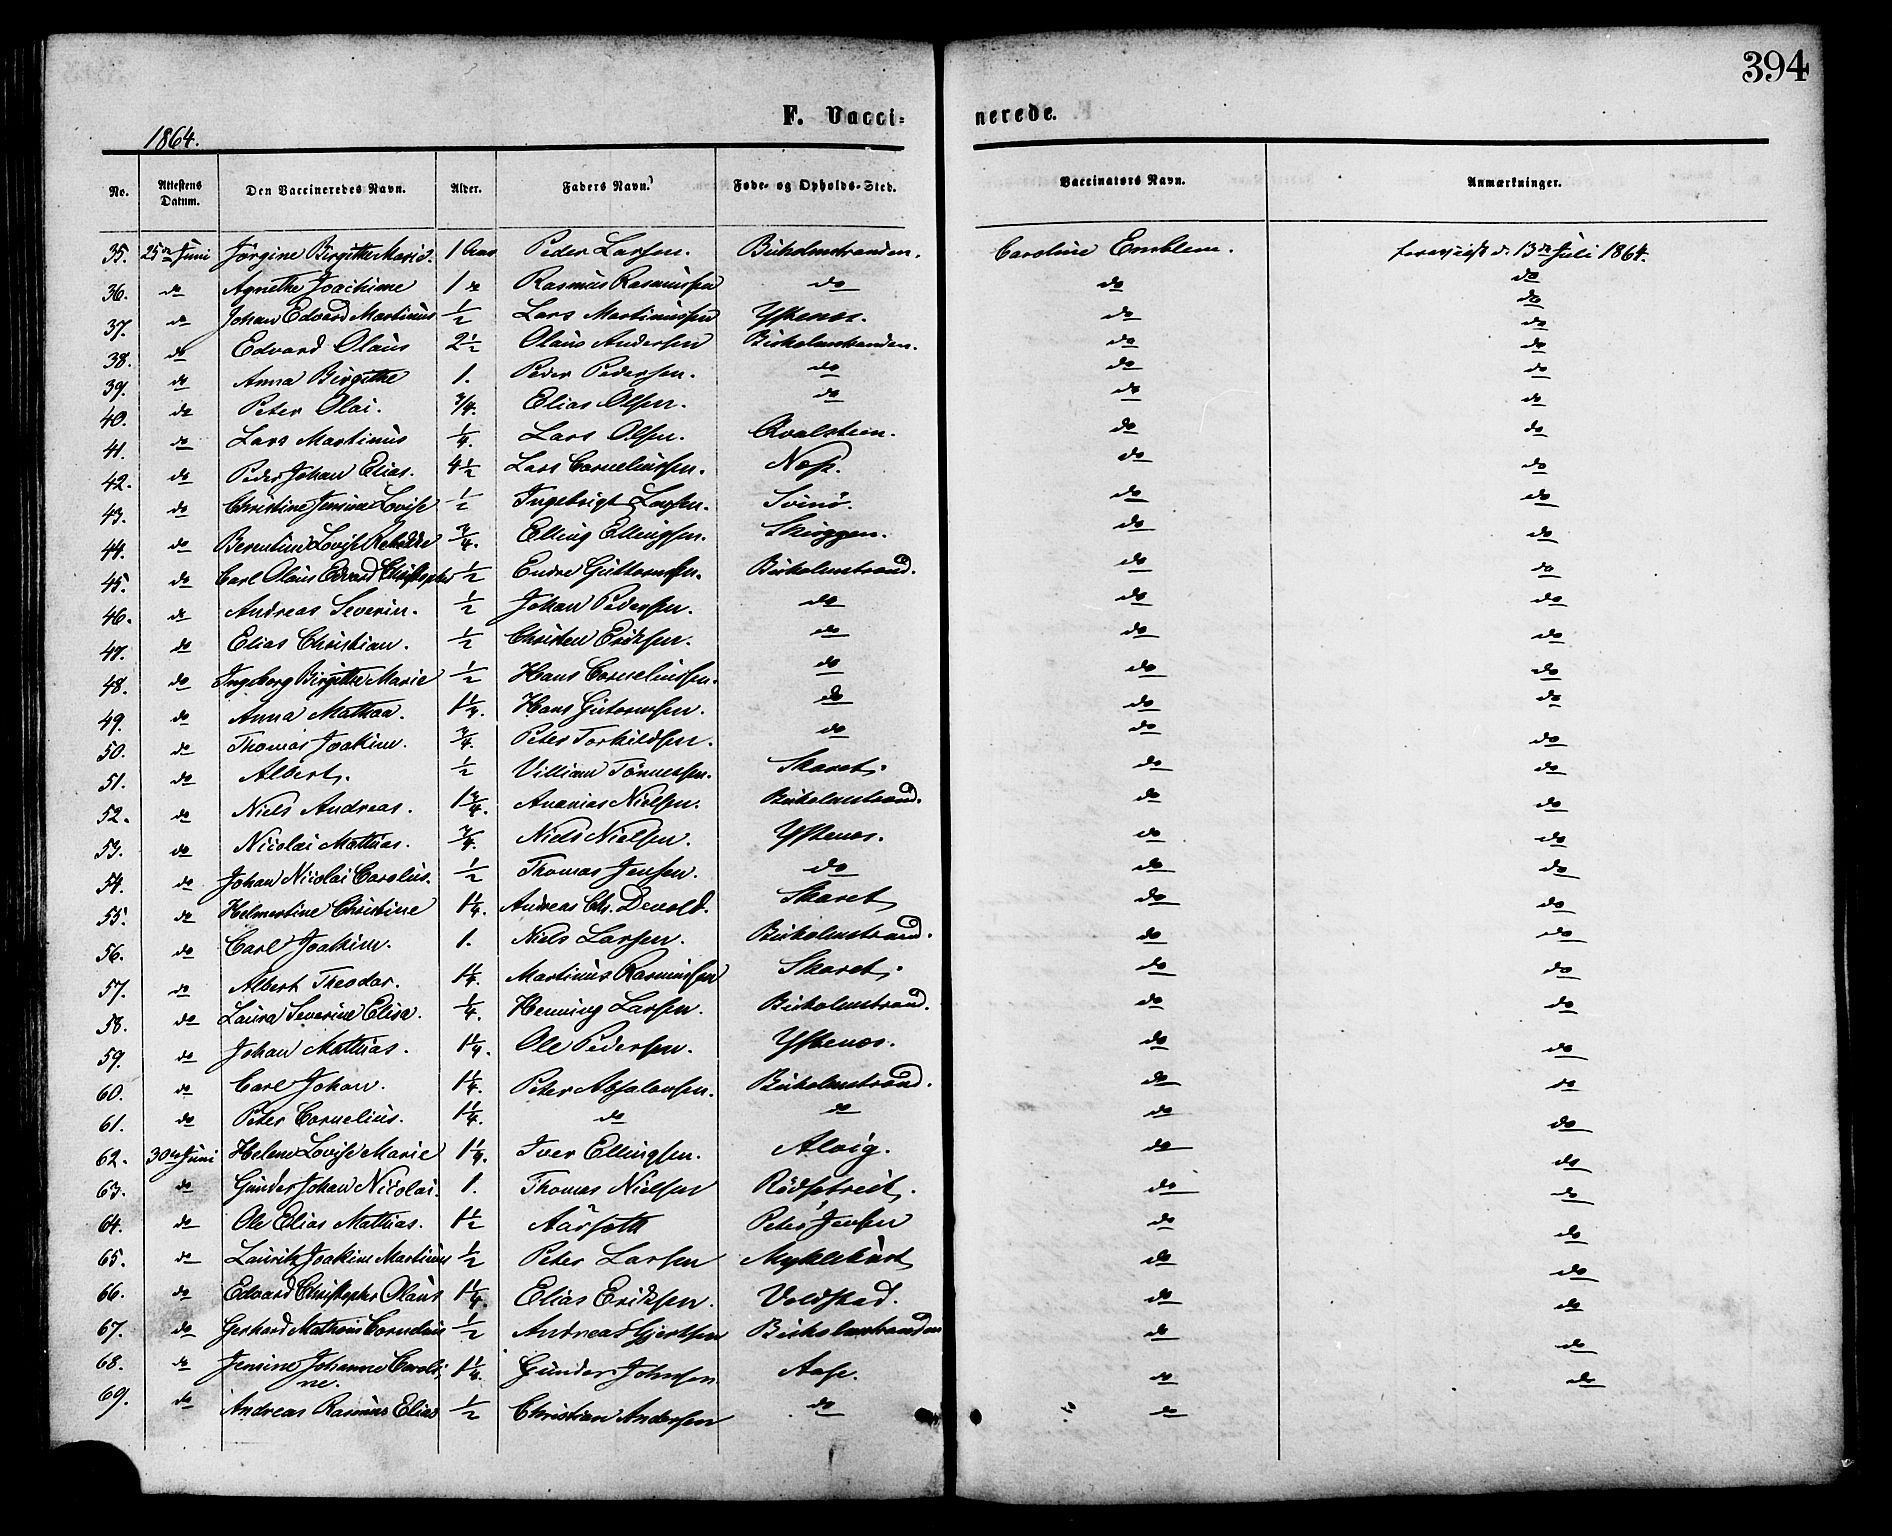 394
F. Vacci= nerede.
1864.
No. Attestens Datum. Den Vaccineredes Navn. Alder. Faders Navn. Føde- og Opholds-Sted. Vaccinators Navn. Anmærkninger.
35. 25de Juni Jørgine Birgitte Marie. 1 Aar Peder Larsen. Birkolmstranden. Caroline Emblem. d. 13de Juli 1864.
36. do Agnethe Joachime 1 do Rasmus Rasmussen do do do
37. do Johan Edvard Martinus 1/2 Lars Martinussen Ystenes. do do
38. do Edvard Olaus 2 1/2 Olaus Andersen Birkolmstranden. do do
39. do Anna Birgithe 1. Peder Pedersen. do do do
40. do Peter Olai. 3/4. Elias Olsen. do do do
41. do Lars Martinus 1/4. Lars Olsen. Qvalstein. do do
42. do Peder Johan Elias. 4 1/2 Lars Corneliussen. Næss. do do
43. do Christine Jensine Lovise 1/2 Ingebrigt Larsen. Svinø. do do
44. do Berentine Lovise 3/4. Elling Ellingsen. Skuggen. do do
45. do Carl Olaus Edvard Christopher 1/2 Endre Guttormsen. Birkolmstrand. do do
46. do Andreas Severin. 1/2 Johan Pedersen. do do do
47. do Elias Christian. 1/2 Christen Eriksen. do do do
48. do Ingeborg Birgitte Marie 1/2 Hans Corneliussen. do do do
49. do Anna Mathea. 1 1/4. Hans Gutormsen. do do do
50. do Thomas Joakim. 3/4. Peter Torkildsen. do do do
51. do Albert. 1/2 Villiam Tønnessen. Skaret. do do
52. do Niels Andreas. 1 3/4. Ananias Nielsen. Birkolmstrand. do do
53. do Nicolai Mathias. 3/4. Niels Nielsen. Ystenes. do do
54. do Johan Nicolai Carolus. 1/2 Thomas Jensen. do do do
55. do Helmertine Christine 1 1/4. Andreas Chr. Devold. Skaret do do
56. do Carl Joakim. 1. Niels Larsen. Birkolmstrand. do do
57. do Albert Theodor. 1 1/4. Martinus Rasmussen Skaret. do do
58. do Laura Severine Elisa. 1/4. Henning Larsen. Birkolmstrand. do do
59. do Johan Mathias. 1 1/4. Ole Pedersen. Ystenes. do do
60. do Carl Johan. 1 1/4. Peter Absalonsen. Birkolmstrand. do do
61. do Peter Cornelius. 1 1/4. do do do do
62. 30te Juni Helene Lovise Marie 1 1/4. Iver Ellingsen. Alvig. do do
63. do Gunder Johan Nicolai. 1. Thomas Nielsen Rødsetreit. do do
64. do Ole Elias Mathias. 1 1/2 Aarseth Peter Jensen do do
65. do Lauritz Joakim Martinus 1/2 Peter Larsen Myklebust do do
66. do Edvard Christopher Olaus 1 1/4. Elias Eriksen. Voldstad. do do
67. do Gerhard Mathias Cornelius 1/2 Andreas Gjertsen Birkolmstranden do do
68. do Jensine Johanne Caroli,
ne. 1 1/4. Gunder Johnsen Aase. do do
69. do Andreas Rasmus Elias 1/2 Christian Andersen do do